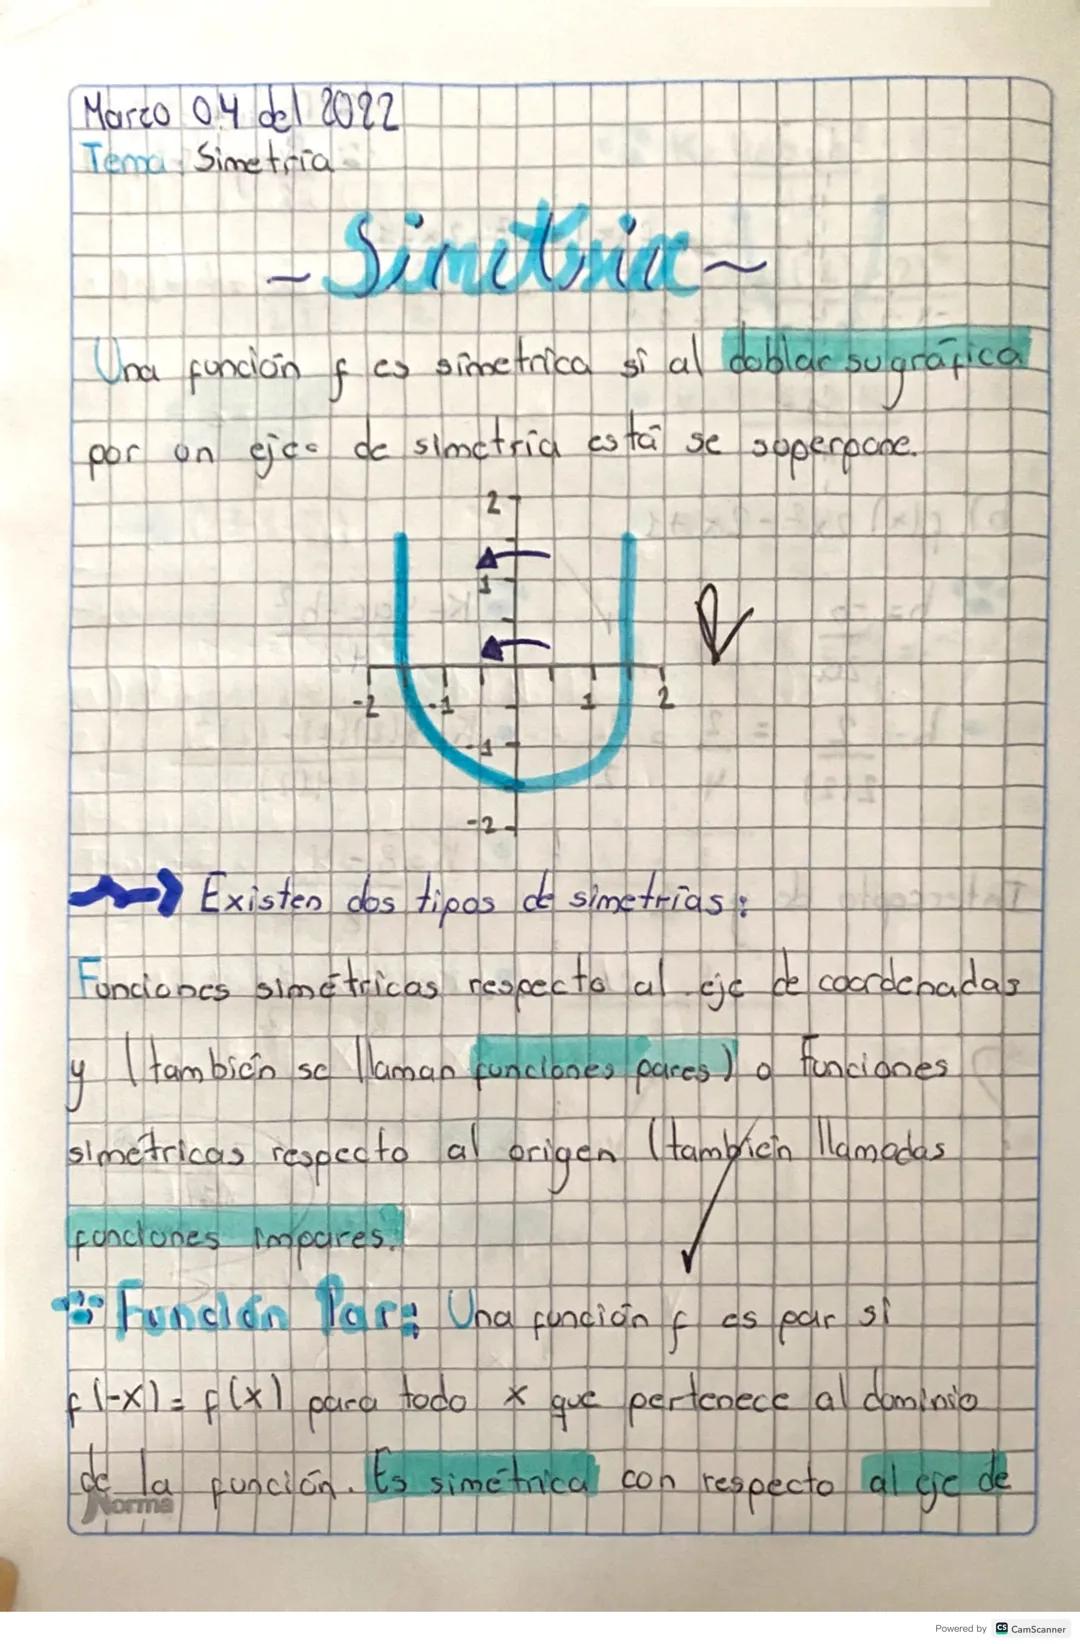 Marzo 04 del 2022
Tema: Simetría
~ Simetria ~
Una función f es símetrica sí al doblar su gráfica
por un eje de simetría está se superpone.
2
1
-2 -1 1 2
-1
-2
Existen dos tipos de simetrías:
Funciones simétricas respecto al eje de coordenadas
y (también se llaman funciones pares) o funciones
simétricas respecto al origen (también llamadas
funciones impares.
Función Par: Una función f es par si
f(-x) = f(x) para todo x que pertenece al dominio
de la función. Es simétrica con respecto al eje de
Norma
Powered by CS CamScanner